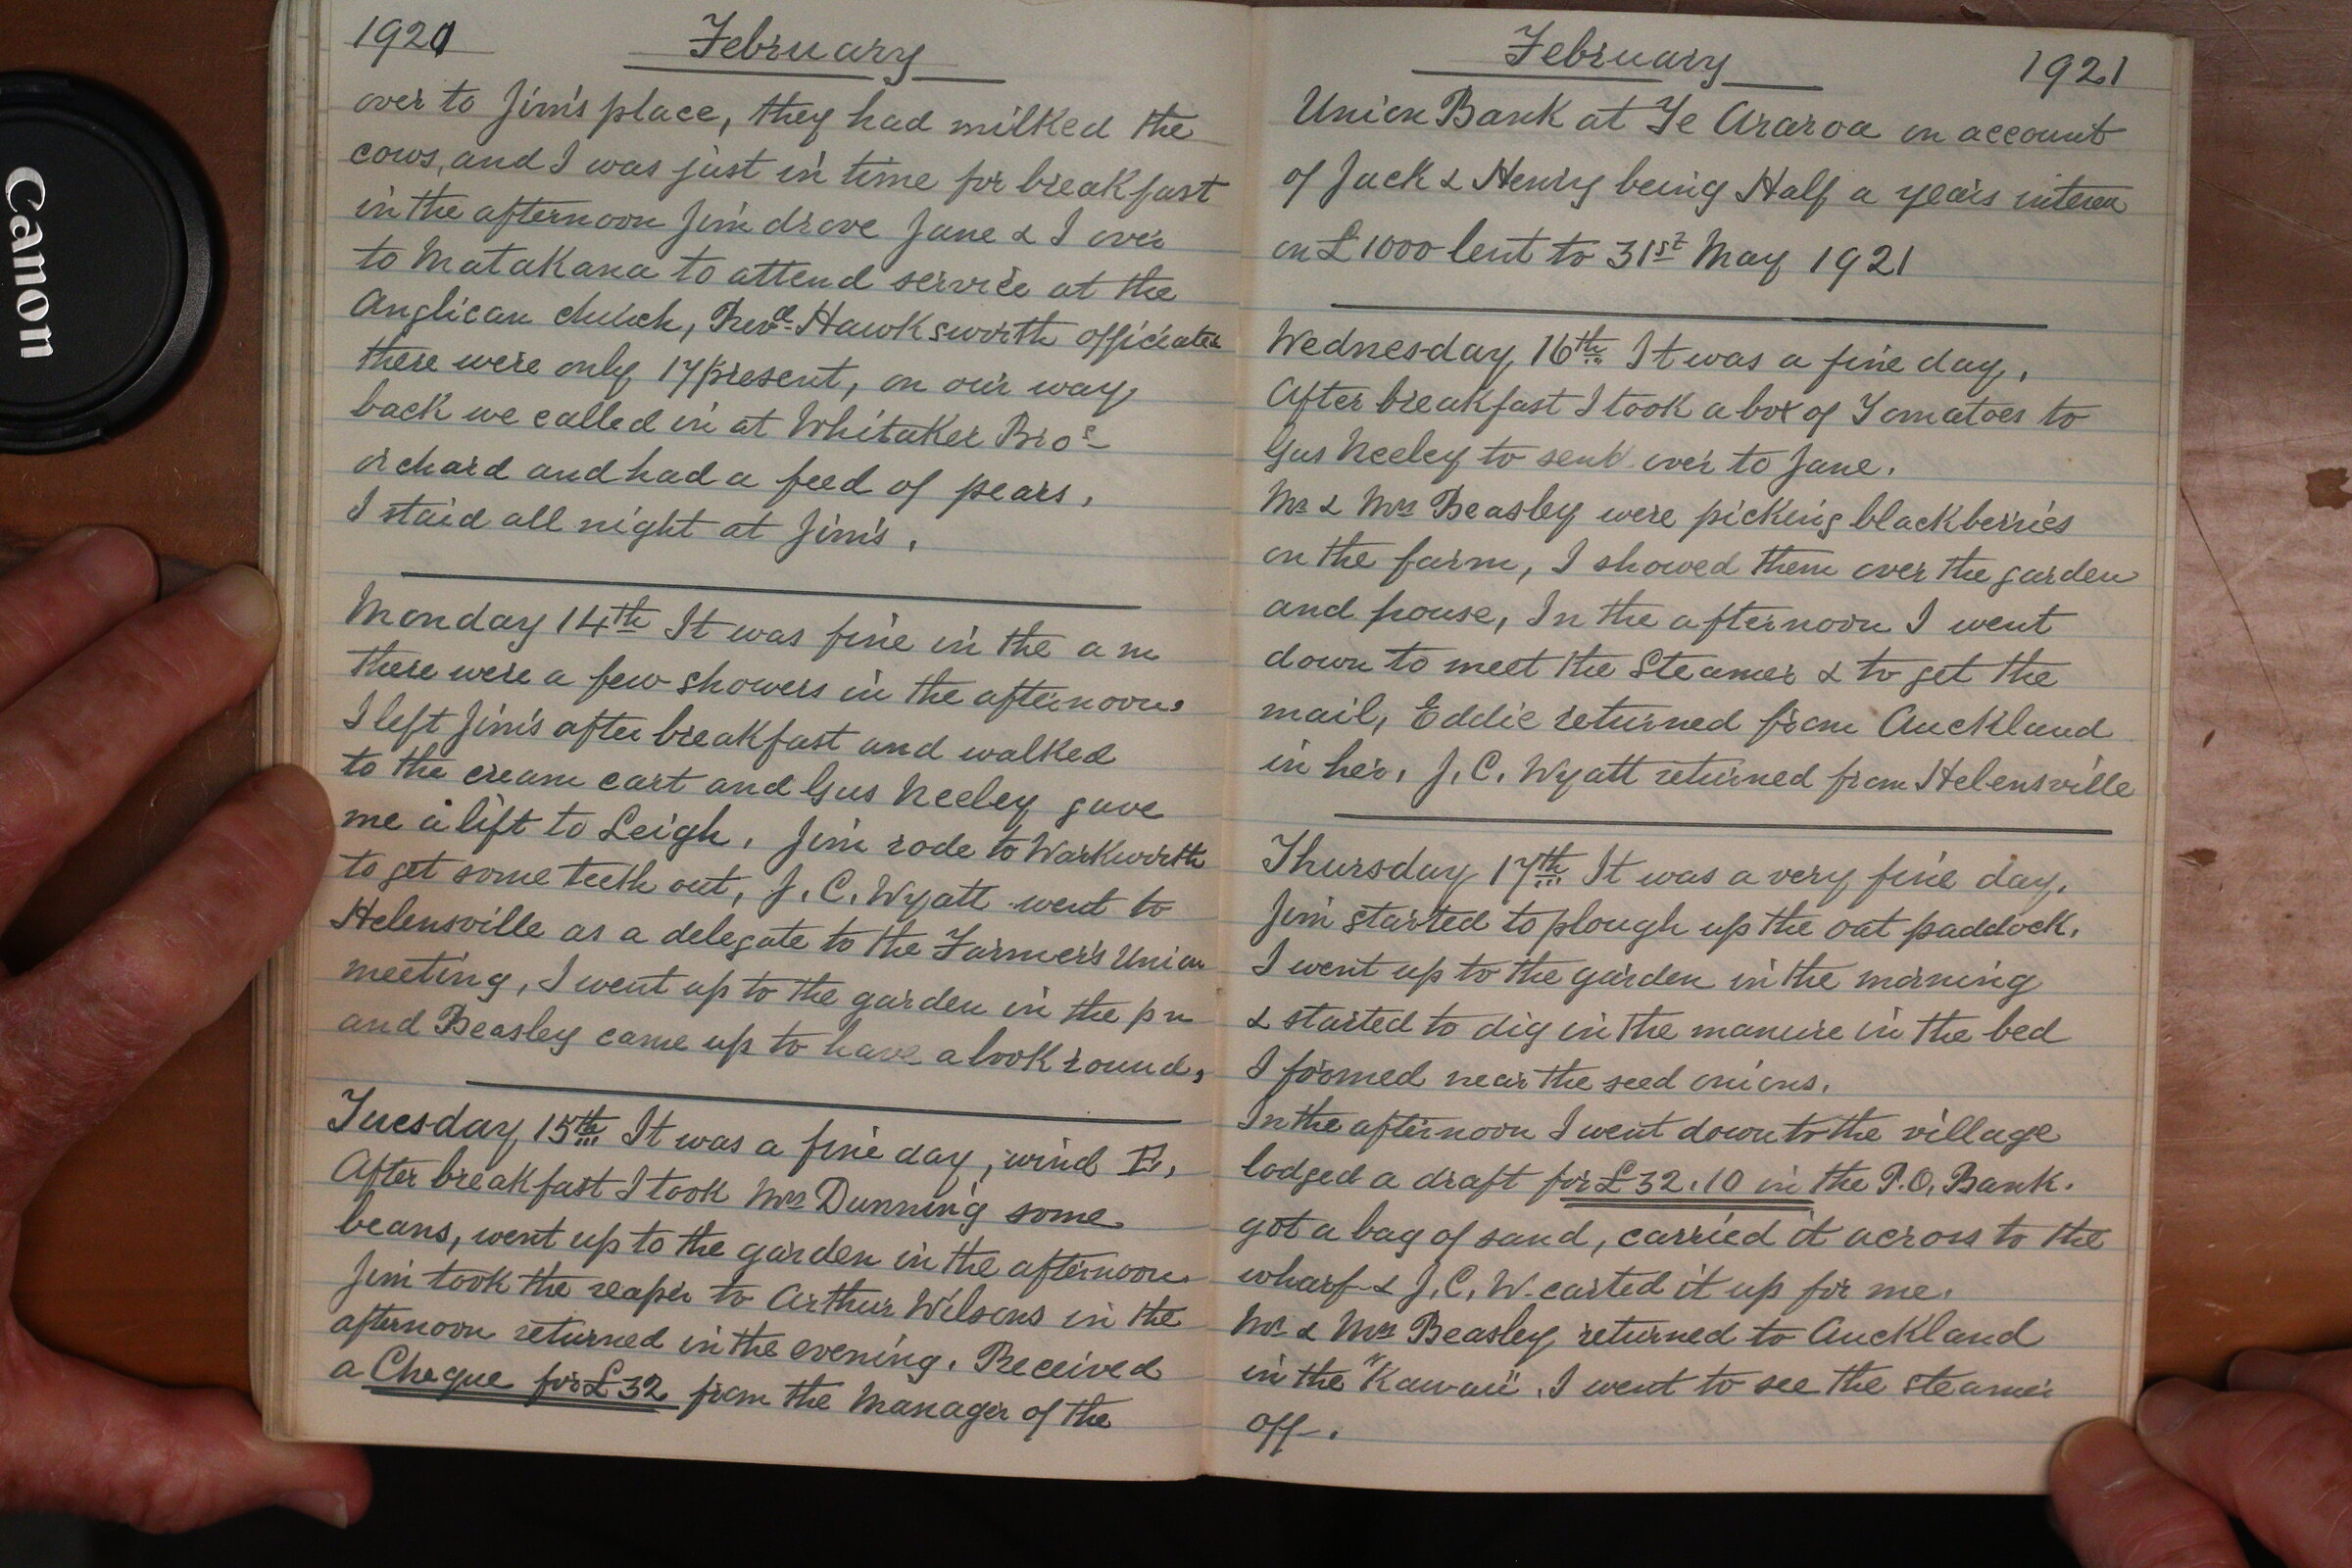 Canon
1921 February
over to Jim's place, they had milked the
cows, and I was just in time for breakfast
in the afternoon Jim drove Jane & I over
to Matakana to attend service at the
Anglican church, Revd. Hawksworth officiated
there were only 17 present, on our way
back we called in at Whitaker Bros
orchard and had a feed of pears,
I staid all night at Jim's,
Monday 14th It was fine in the a m
there were a few showers in the afternoon,
I left Jim's after breakfast and walked
to the cream cart and Gus Neeley gave
me a lift to Leigh. Jim rode to Warkworth
to get some teeth out, J. C. Wyatt went to
Helensville as a delegate to the Farmer's Union
meeting, I went up to the garden in the p m
and Beasley came up to have a look round,
Tuesday 15th It was a fine day, wind E,
After breakfast I took Mrs Dunning some
beans, went up to the garden in the afternoon.
Jim took the reaper to Arthur Wilsons in the
afternoon returned in the evening. Received
a Cheque for £32 from the Manager of the
February 1921
Union Bank at Te Araroa on account
of Jack & Henry being Half a years interest
on £1000 lent to 31st May 1921
Wednesday 16th It was a fine day,
After breakfast I took a box of Tomatoes to
Gus Neeley to send over to Jane.
Mr & Mrs Beasley were picking blackberries
on the farm, I showed them over the garden
and house, In the afternoon I went
down to meet the Steamer & to get the
mail, Eddie returned from Auckland
in her, J. C. Wyatt returned from Helensville
Thursday 17th It was a very fine day.
Jim started to plough up the oat paddock.
I went up to the garden in the morning
& started to dig in the manure in the bed
I formed near the seed onions.
In the afternoon I went down to the village
lodged a draft for £32.10 in the P.O. Bank.
got a bag of sand, carried it across to the
wharf & J. C. W. carted it up for me.
Mr & Mrs Beasley returned to Auckland
in the "Kawau". I went to see the steamer
off.